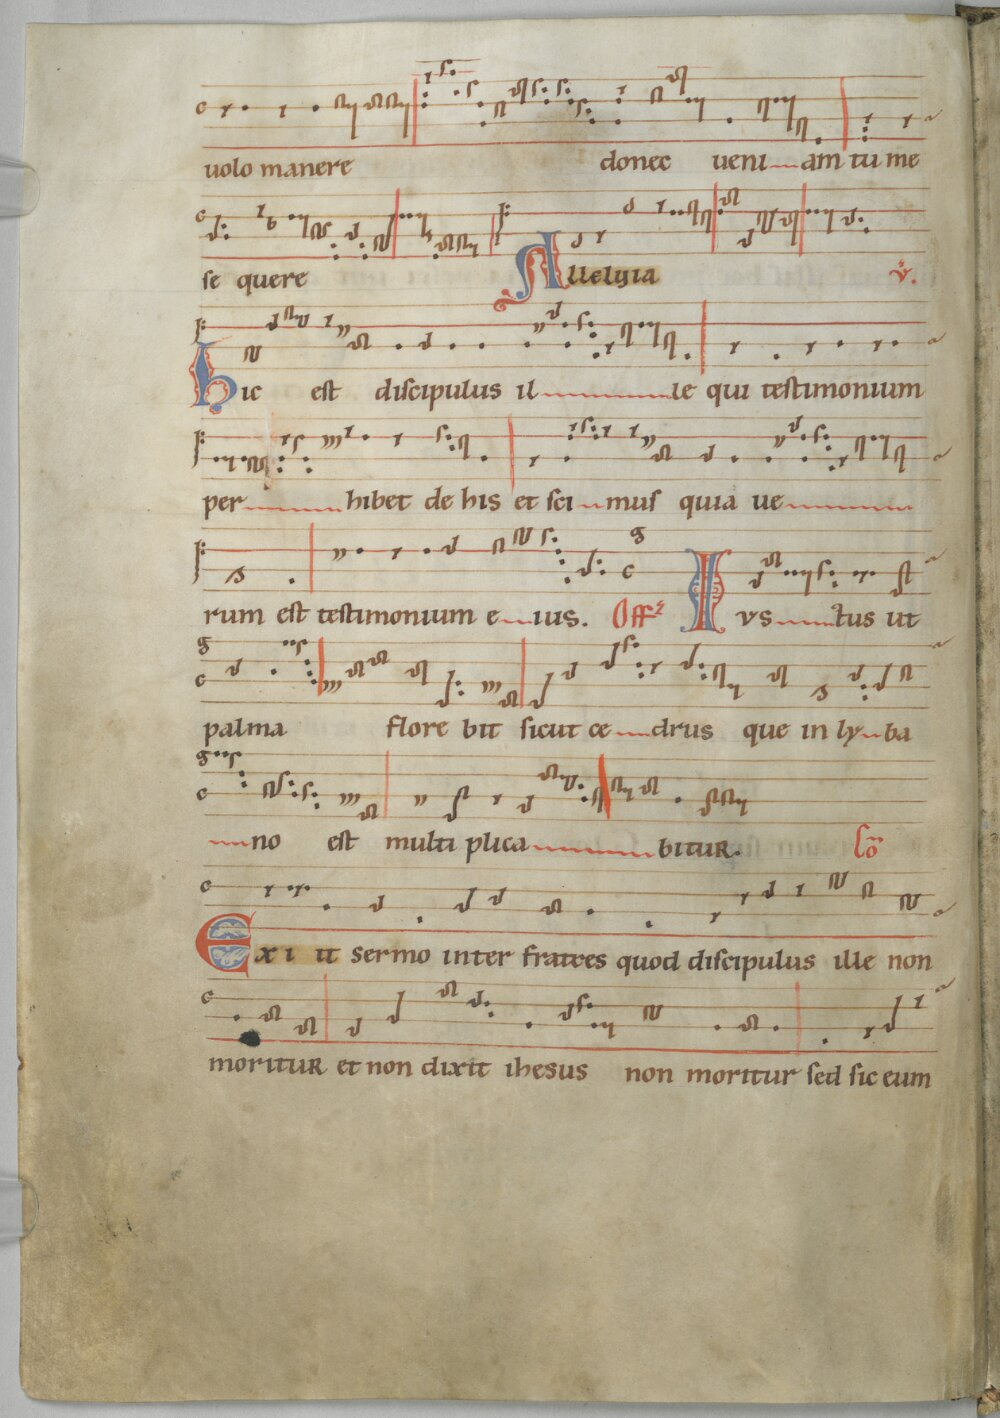 uolo manere donec ueni am tu me
se quere Alleluia ℣.
Hic est discipulus il le qui testimonium
per hibet de his et sci mus quia ue
rum est testimonium e ius. Off IVS tus ut
palma flore bit sicut ce drus que in ly ba
no est multi plica bitur. Co
Exi it sermo inter fratres quod discipulus ille non
moritur et non dixit ihesus non moritur sed sic eum